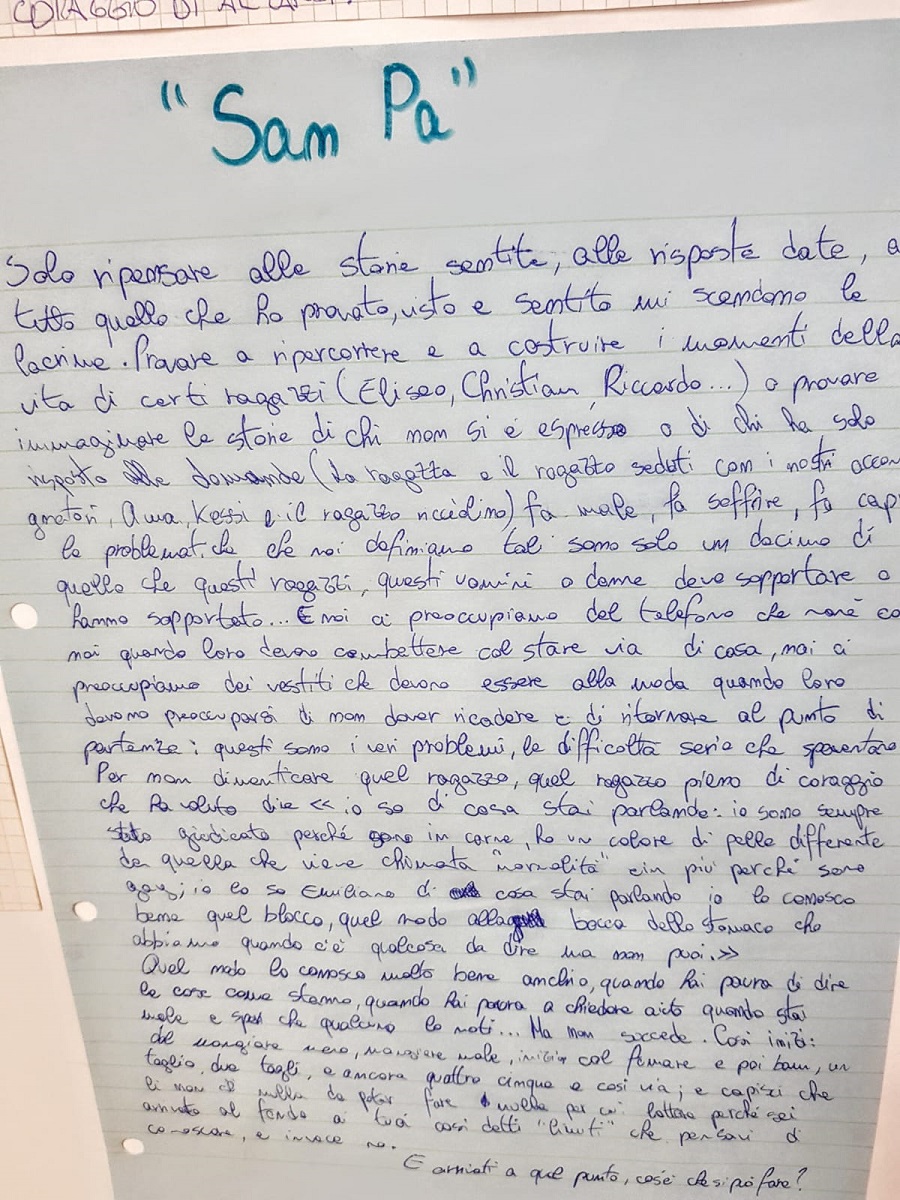 CORAGGIO DI
"Sam Pa"
Solo ripensare alle storie sentite, alle risposte date, a
tutto quello che ho provato, visto e sentito mi scendono le
lacrime. Provare a ripercorrere e a costruire i momenti della
vita di certi ragazzi (Eliseo, Christian, Riccardo...) o provare
immaginare le storie di chi non si è espresso o di chi ha solo
risposto alle domande (la ragazza e il ragazzo seduti con i nostri accom
gnatori, Awa, Kessi e il ragazzo ricciolino) fa male, fa soffrire, fa cap
le problematiche che noi definiamo tali sono solo un decimo di
quello che questi ragazzi, questi uomini o donne deve sopportare o
hanno sopportato... E noi ci preoccupiamo del telefono che non è co
noi quando loro devono combattere col stare via di casa, noi ci
preoccupiamo dei vestiti che devono essere alla moda quando loro
devono preoccuparsi di non dover ricadere e di ritornare al punto di
partenza; questi sono i veri problemi, le difficoltà serie che spaventano
Per non dimenticare quel ragazzo, quel ragazzo pieno di coraggio
che ha voluto dire << io so di cosa stai parlando: io sono sempre
stato giudicato perché sono in carne, ho un colore di pelle differente
da quella che viene chiamata "normalità" e in più perché sono
gay; io lo so Emiliano di cosa stai parlando io lo conosco
bene quel blocco, quel nodo alla bocca dello stomaco che
abbiamo quando c'è qualcosa da dire ma non puoi.>>
Quel nodo lo conosco molto bene anch'io, quando hai paura di dire
le cose come stanno, quando hai paura a chiedere aiuto quando stai
male e speri che qualcuno lo noti... Ma non succede. Così inizi:
dal mangiare meno, mangiare male, inizi col fumare e poi bam, un
taglio, due tagli, e ancora quattro cinque e così via; e capisci che
lì non c'è nulla da poter fare nulla per cui lottare perché sei
arrivato al fondo ai tuoi così detti "limiti" che pensavi di
conoscere, e invece no.
E arrivati a quel punto, cos'è che si può fare?